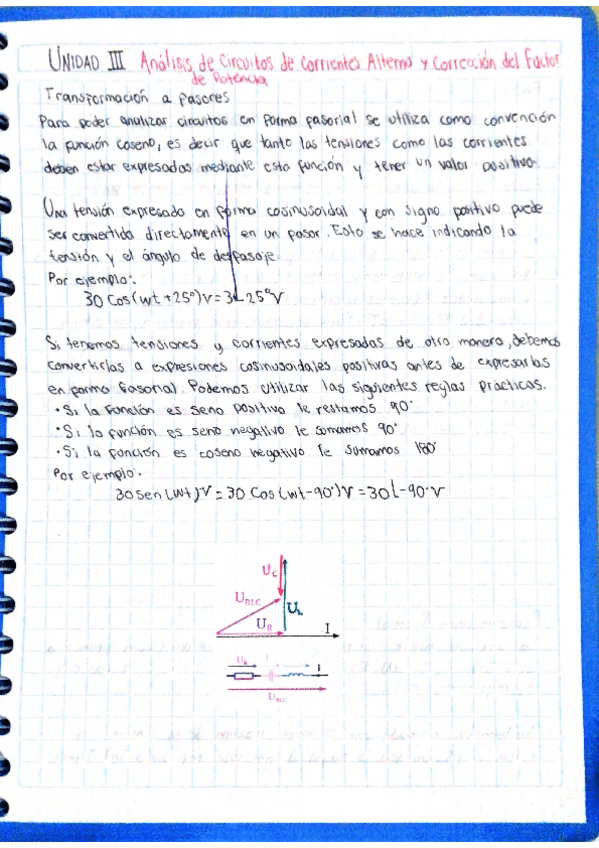 UNIDAD III Análisis de Circuitos de Corrientes Alterna y Corrección del Factor
de Potencia
Transformación a Fasores
Para poder analizar circuitos en forma fasorial se utiliza como convención
la función coseno, es decir que tanto las tensiones como las corrientes
deben estar expresadas mediante esta función y tener un valor positivo
Una tensión expresada en forma cosinusoidal y con signo positivo puede
ser convertida directamente en un fasor. Esto se hace indicando la
tensión y el ángulo de desfasaje.
Por ejemplo:
30 Cos(wt+25°)V = 3∟25°V
Si tenemos tensiones y corrientes expresadas de otro manera, debemos
convertirlas a expresiones cosinusoidales positivas antes de expresarlas
en forma fasorial. Podemos utilizar las siguientes reglas practicas.
• Si la función es seno positivo le restamos 90°
• Si la función es seno negativo le sumamos 90°
• Si la función es coseno negativo le sumamos 180°
Por ejemplo:
30 Sen(wt)V = 30 Cos(wt-90°)V = 30∟-90°V
U_C
U_RLC
U_L
U_R
I
U_R
I
U_RLC